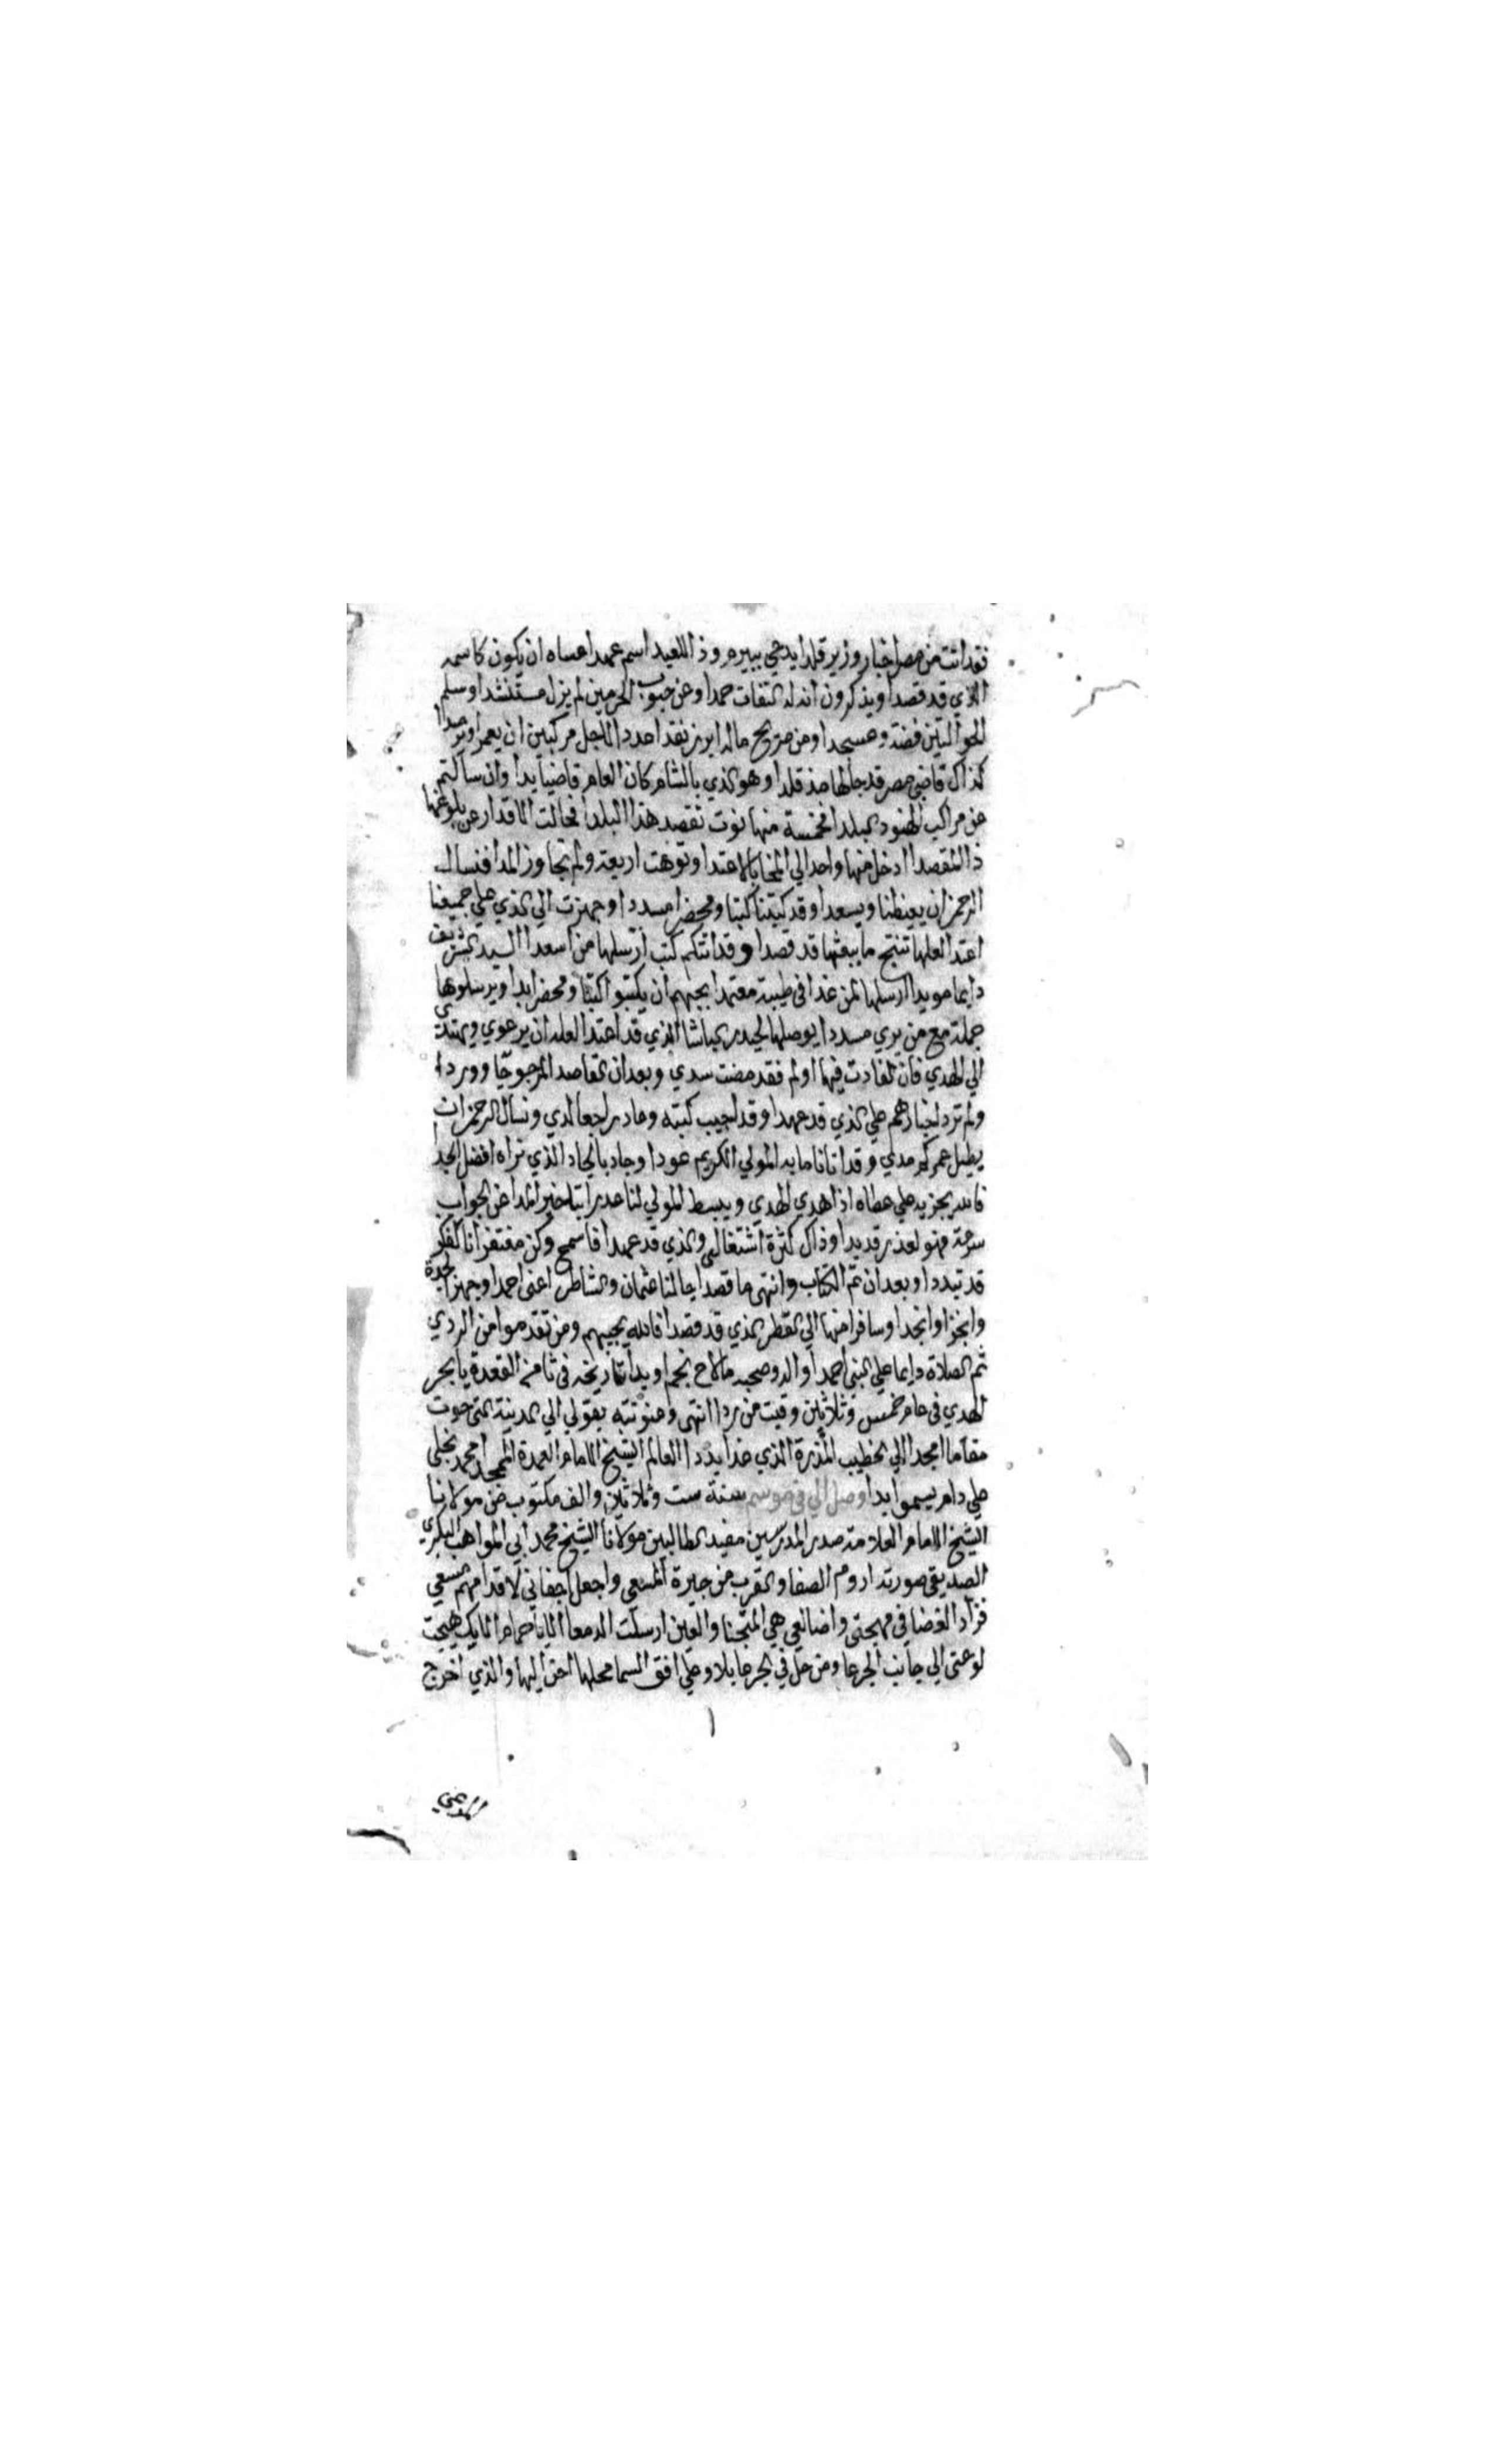 فقد اتت من مصر اخبار وزير قلدا يدعي ببيرم وذا للعيد اسم عهدا عساه ان يكون كاسمه
الذي قد قصدا ويذكرون انه له التفات حمدا وعن حبوب الحرمين لم يزل مستنشدا وسلم
الحوالتين فضة وعسجدا ومن صريح ماله ابرز نقدا عددا لاجل مركبين ان يعمرا ويرصدا
كذاك قاضي مصر قد جا لها مذ قلدا وهو الذي بالشام كان العام قاضيا بدا وان سالتم
عن مراكب الهنود البلدا فخمسة منها نوت تقصد هذا البلدا فحالت الاقدار عن بلوغها
ذا المقصدا ادخل منها واحد الي المخا بالاعتدا وتوهت اربعة ولم تجاوز المدا فنسال
الرحمن ان يغيظنا ويسعدا وقد كتبنا كتبا ومحضرا مسددا وجهزت الي الذي علي جميعنا
اعتدا لعلها تنتج ما ببعثها قد قصدا وقد اتتكم كتب ارسلها من اسعدا السيد الشريف
دايما مويدا ارسلها لمن غدا في طيبة معتمدا يجبهم ان يكتبوا كتبا ومحضرا بدا ويرسلوها
جملة مع من يري مسددا يوصلها لحيدر الباشا الذي قد اعتدا لعله ان يرعوي ويهتدي
الي الهدي فان افادت فيها او لم فقد مضت سدي وبعد ان القاصد المرجو جا ووردا
ولم ترد اخبارهم علي الذي قد عهدا وقد اجيب كتبه وعاد راجعا لدي ونسال الرحمن ان
يطيل عمركم مدي وقد اتانا ما به المولي الكريم عودا وجاد بالجاد الذي نراه افضل الجدا
فالله يجزيه علي عطاه اذا هدي الهدي ويبسط المولي لنا عذرا بتاخير المدا عن الجواب
سرعة فهو لعذر قد بدا وذاك كثرة اشتغالي والذي قد عهدا فاسمح وكن مغتفرا فالفكر
قد تبددا وبعد ان تم الكتاب وانتهي ما قصدا جا لنا عثمان والشاطر اعني احمدا وجهزا لجدة
وانجزا وانجدا وسافرا منها الي القطر الذي قد قصدا فالله يجبيهم ومن تقدموا من الردي
ثم الصلاة دايما علي النبي احمدا واله وصحبه ما لاح نجم او بدا تاريخه في ثامن القعدة يا بحر
الهدي في عام خمس وثلاثين وقيت من ردا انتهي وعنونته بقولي الي المدينة التي حوت
مقاما امجدا الي الخطيب المذره الذي غدا يدا العالم الشيخ الامام العمدة الممجد محمد نجل
علي دام يسموا بدا وصل الي في موسم سنة ست وثلاثين والف مكتوب من مولانا
الشيخ الامام العلامة صدر المدرسين مفيد الطالبين مولانا الشيخ محمد ابي المواهب البكري
الصديقي صورته اروم الصفا والقرب من جيرة المسعي واجعل اجفاني لاقدامهم مسعي
فزاد الغضا في مهجتي واضالعي هي المنحنا والعين ارسلت الدمعا الا يا حمام الايك هيجت
لوعتي الي جانب الجرعا ومن حل في الجرعا بلاد علي افق السما محلها احن اليها والذي اخرج
المرعي